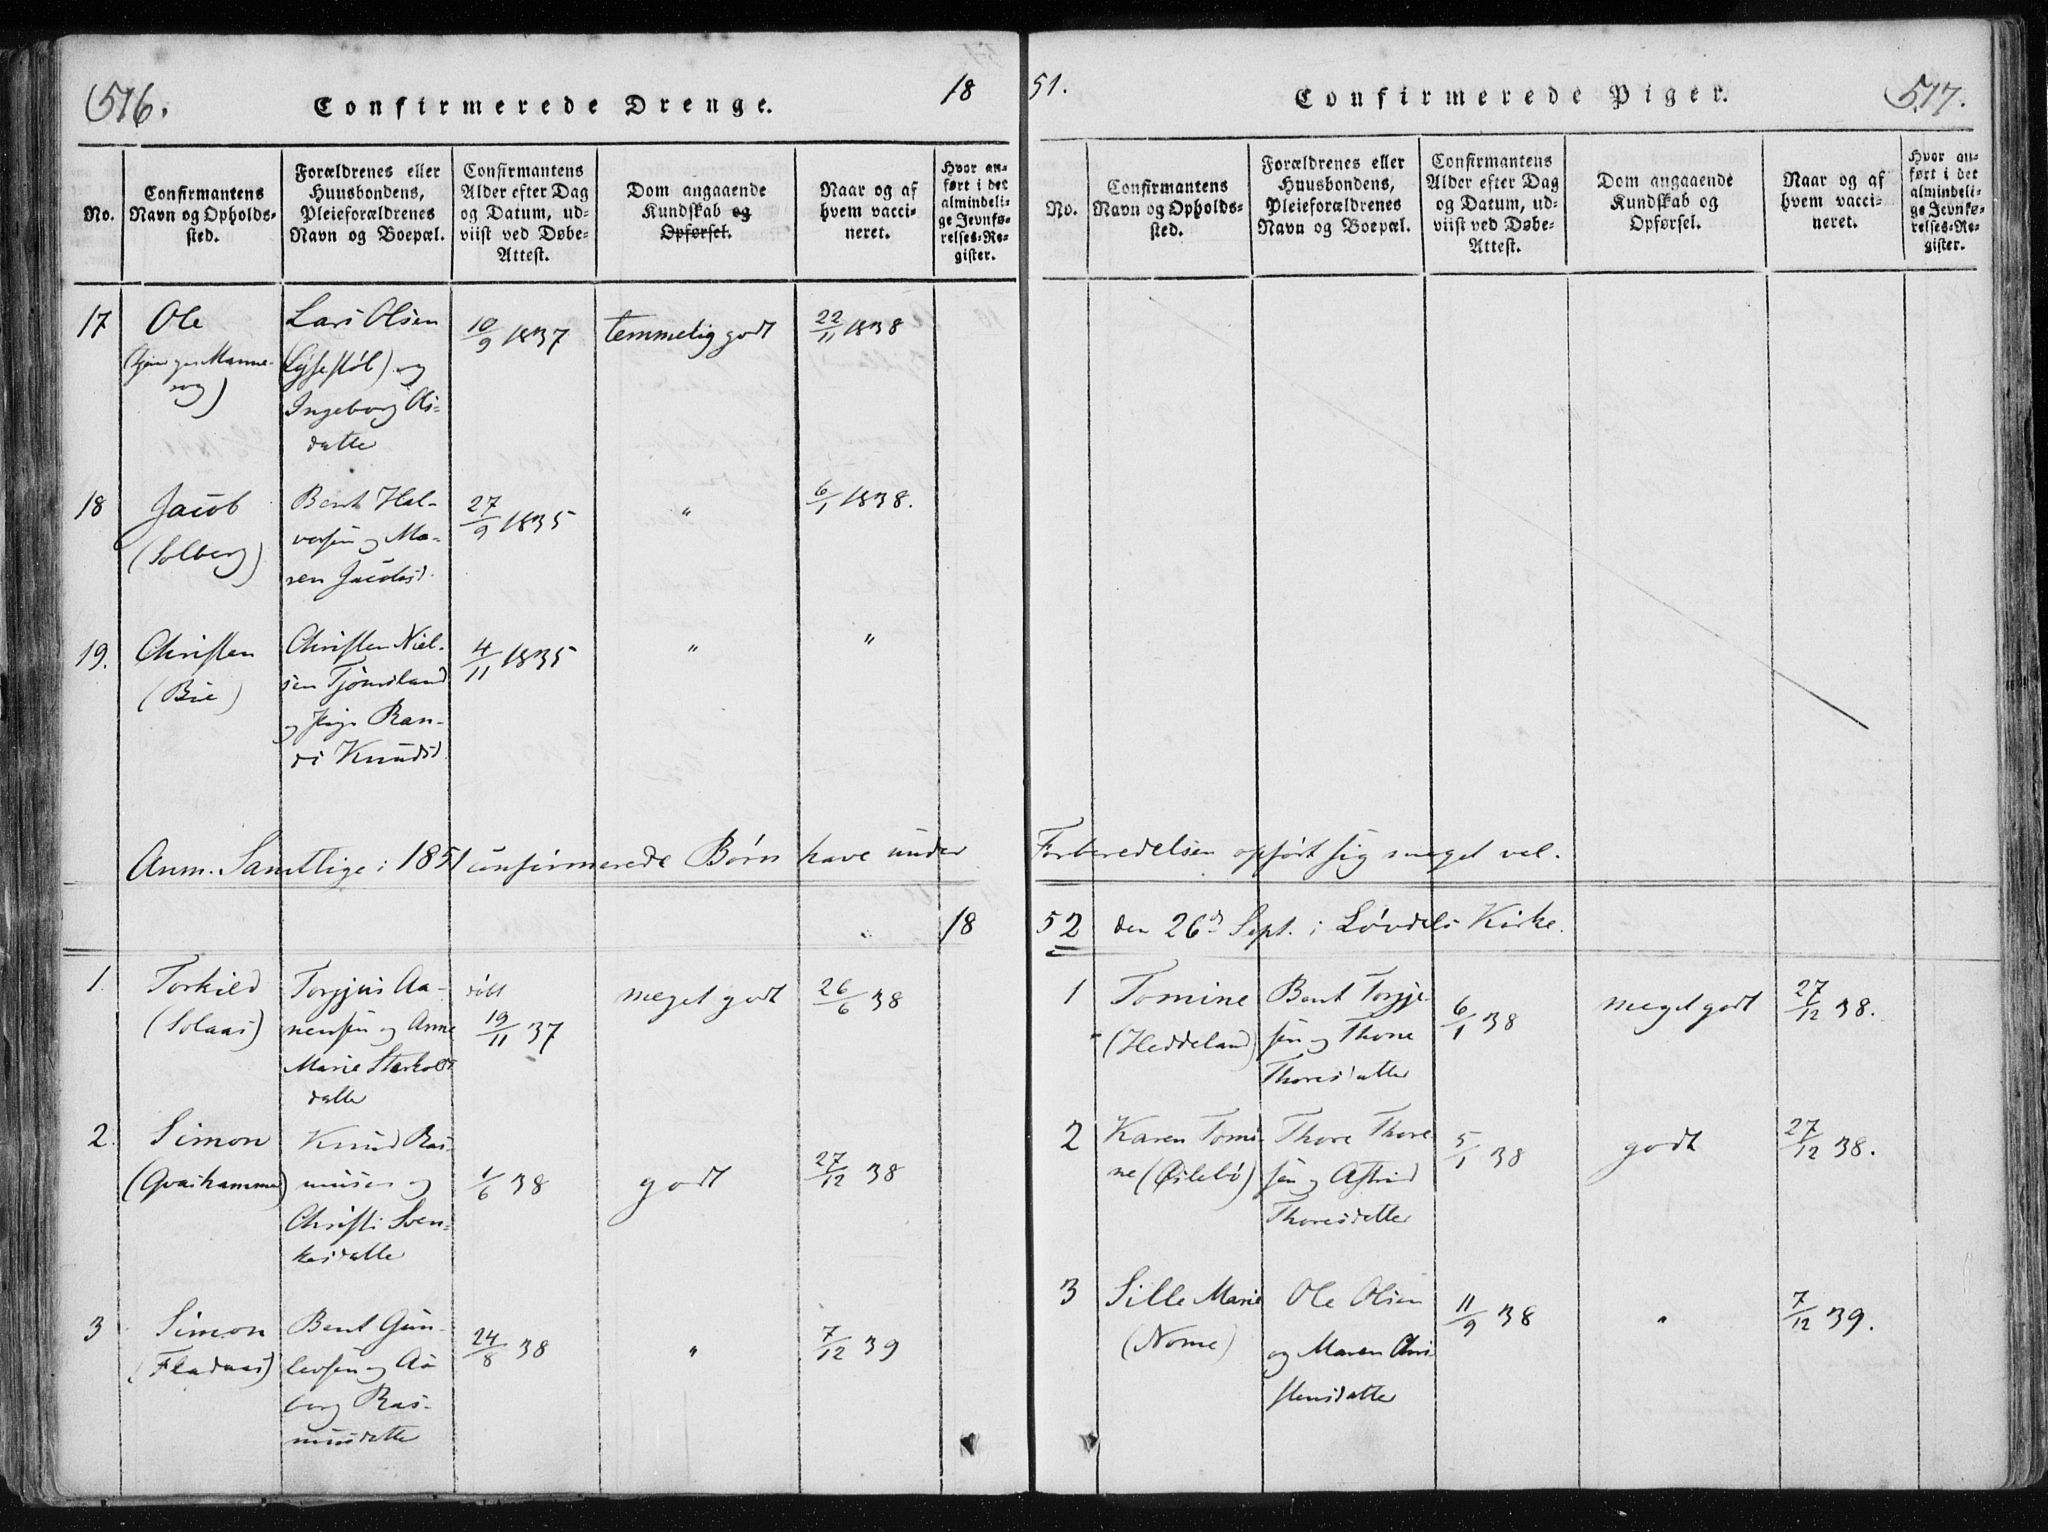 516.
Confirmerede Drenge.
18
No.
Confirmantens Navn og Opholds-sted.
Forældrenes eller Huusbondens, Pleieforældrenes Navn og Boepæl.
Confirmantens Alder efter Dag og Datum, ud-viist ved Døbe-Attest.
Dom angaaende Kundskab og Opførsel.
Naar og af hvem vacci-neret.
Hvor an-ført i det almindeli-ge Jevnfø-relses-Re-gister.
17
Ole
Lars Olsen
(Lyssestøl) og
Ingeborg Ols-
datter
10/9 1837
temmelig godt
22/11 1838
18
Jacob
(Solberg)
Bent Hal-
vorsen og Ma-
ren Jacobsd.
27/9 1835
"
6/1 1838.
19.
Christen
(Bie)
Christen Niel-
sen Tjomsland
og Pige Ran-
di Knudsd.
4/11 1835
"
"
Anm. Samtlige i 1851 confirmerede Børn have under
18
1.
Torkild
(Solaas)
Torgjus Aa-
nensen og Anne
Marie Sterkols
datter
døbt
19/11 37
meget godt
26/6 38
2.
Simon
Knud Ras-
musen og
Christi Sven-
kesdatter
1/6 38
godt
27/12 38
3
Simon
(Fladaas)
Bent Gun-
levsen og Aa
borg Ras-
musdatter
24/8 38
"
7/12 39
51.
Confirmerede Piger.
517.
No.
Confirmantens Navn og Opholds-sted.
Forældrenes eller Huusbondens, Pleieforældrenes Navn og Boepæl.
Confirmantens Alder efter Dag og Datum, ud-viist ved Døbe-Attest.
Dom angaaende Kundskab og Opførsel.
Naar og af hvem vacci-neret.
Hvor an-ført i det almindeli-ge Jevnfø-relses-Re-gister.
Forberedelsen opført sig meget vel.
52 den 26d Sept. i Løvdels Kirke.
1
Tomine
(Heddeland)
Bent Torgje
sen og Thone
Thoresdatter
6/1 38
meget godt
27/12 38.
2
Karen Tomi-
ne (Øilebø)
Thore Thore
sen og Astrid
Thoresdatter
5/1 38
godt
27/12 38.
3
Sille Marie
(Nome)
Ole Olsen
og Maren Chri-
stensdatter
11/9 38
"
7/12 39.